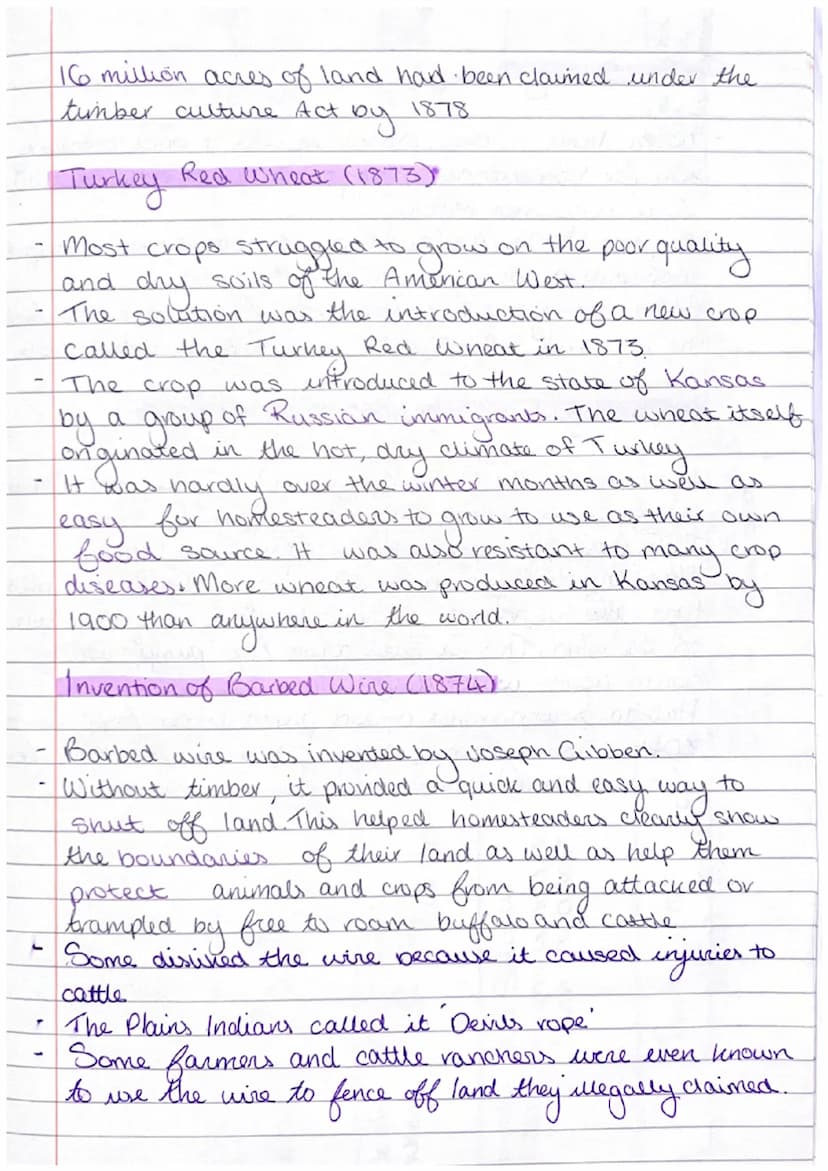 16 million acres of land had been claimed under the
timber culture Act by 1878
Turkey Red Wheat (1873)
- Most crops struggled to grow on the poor quality
and dry soils of the American West.
- The solution was the introduction of a new crop
called the Turkey Red Wheat in 1873.
- The crop was introduced to the state of Kansas
by a group of Russian immigrants. The wheat itself
originated in the hot, dry climate of Turkey
- It was hardly over the winter months as well as
easy for homesteaders to grow to use as their own
food source. It was also resistant to many crop
diseases. More wheat was produced in Kansas by
1900 than anywhere in the world.
Invention of Barbed Wire (1874)
- Barbed wire was invented by Joseph Gibben.
- Without timber, it provided a quick and easy way to
shut off land. This helped homesteaders clearly show
the boundaries of their land as well as help them
protect animals and crops from being attacked or
trampled by free to roam buffalo and cattle
- Some disliked the wire because it caused injuries to
cattle.
- The Plains Indians called it 'Devils rope'
- Some farmers and cattle ranchers were even known
to use the wire to fence off land they illegally claimed.